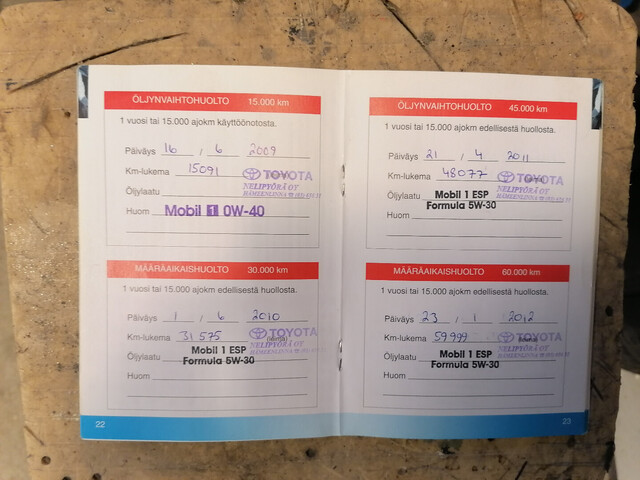 ÖLJYNVAIHTOHUOLTO 15.000 km
1 vuosi tai 15.000 ajokm käyttöönotosta.
Päiväys 16 / 6 2009
Km-lukema 15091
TOYOTA
NELIPYÖRÄ OY
HÄMEENLINNA
Öljylaatu
Huom Mobil 1 0W-40
MÄÄRÄAIKAISHUOLTO 30.000 km
1 vuosi tai 15.000 ajokm edellisestä huollosta.
Päiväys 1 / 6 2010
Km-lukema 31575 (leima)
TOYOTA
NELIPYÖRÄ OY
Öljylaatu Mobil 1 ESP
Formula 5W-30
Huom
22
ÖLJYNVAIHTOHUOLTO 45.000 km
1 vuosi tai 15.000 ajokm edellisestä huollosta.
Päiväys 21 / 4 2011
Km-lukema 48077 (leima)
TOYOTA
NELIPYÖRÄ OY
HÄMEENLINNA
Öljylaatu Mobil 1 ESP
Formula 5W-30
Huom
MÄÄRÄAIKAISHUOLTO 60.000 km
1 vuosi tai 15.000 ajokm edellisestä huollosta.
Päiväys 23 / 1 2012
Km-lukema 59999 (leima)
TOYOTA
NELIPYÖRÄ OY
Öljylaatu Mobil 1 ESP
Formula 5W-30
Huom
23